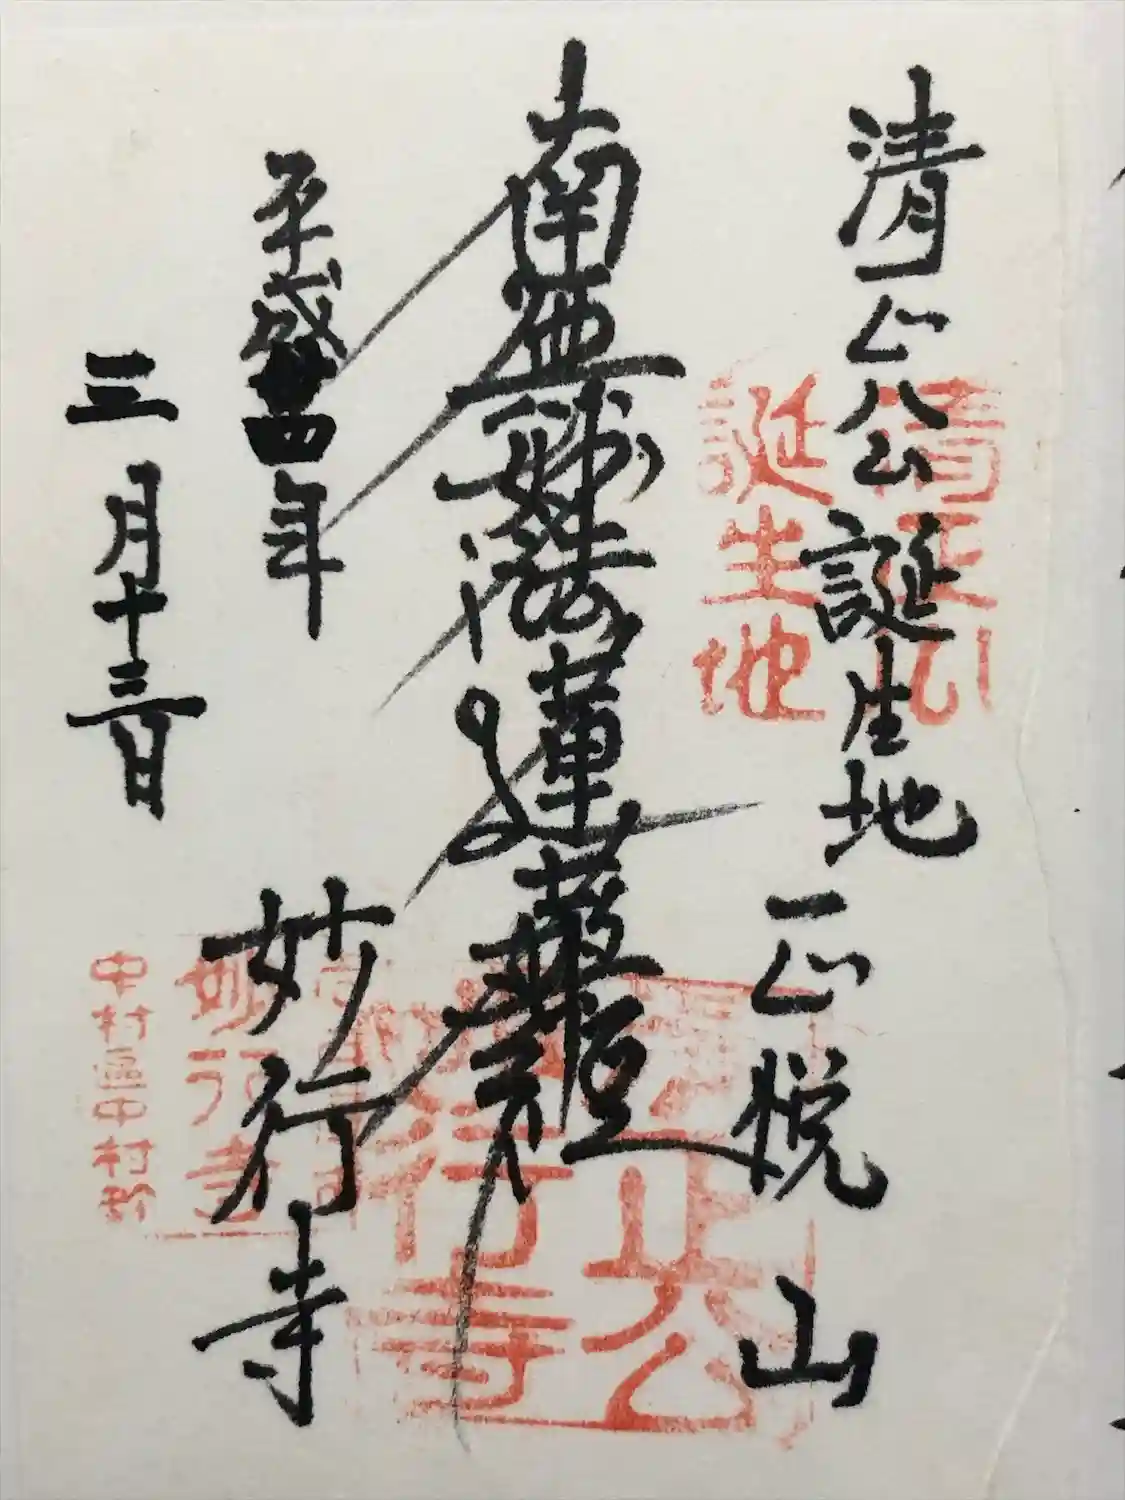 清正公誕生地 正悦山
清正公
誕生地
南無妙法蓮華経
正公
行寺
平成廿四年
三月十三日
妙行寺
妙行寺
中村區中村町